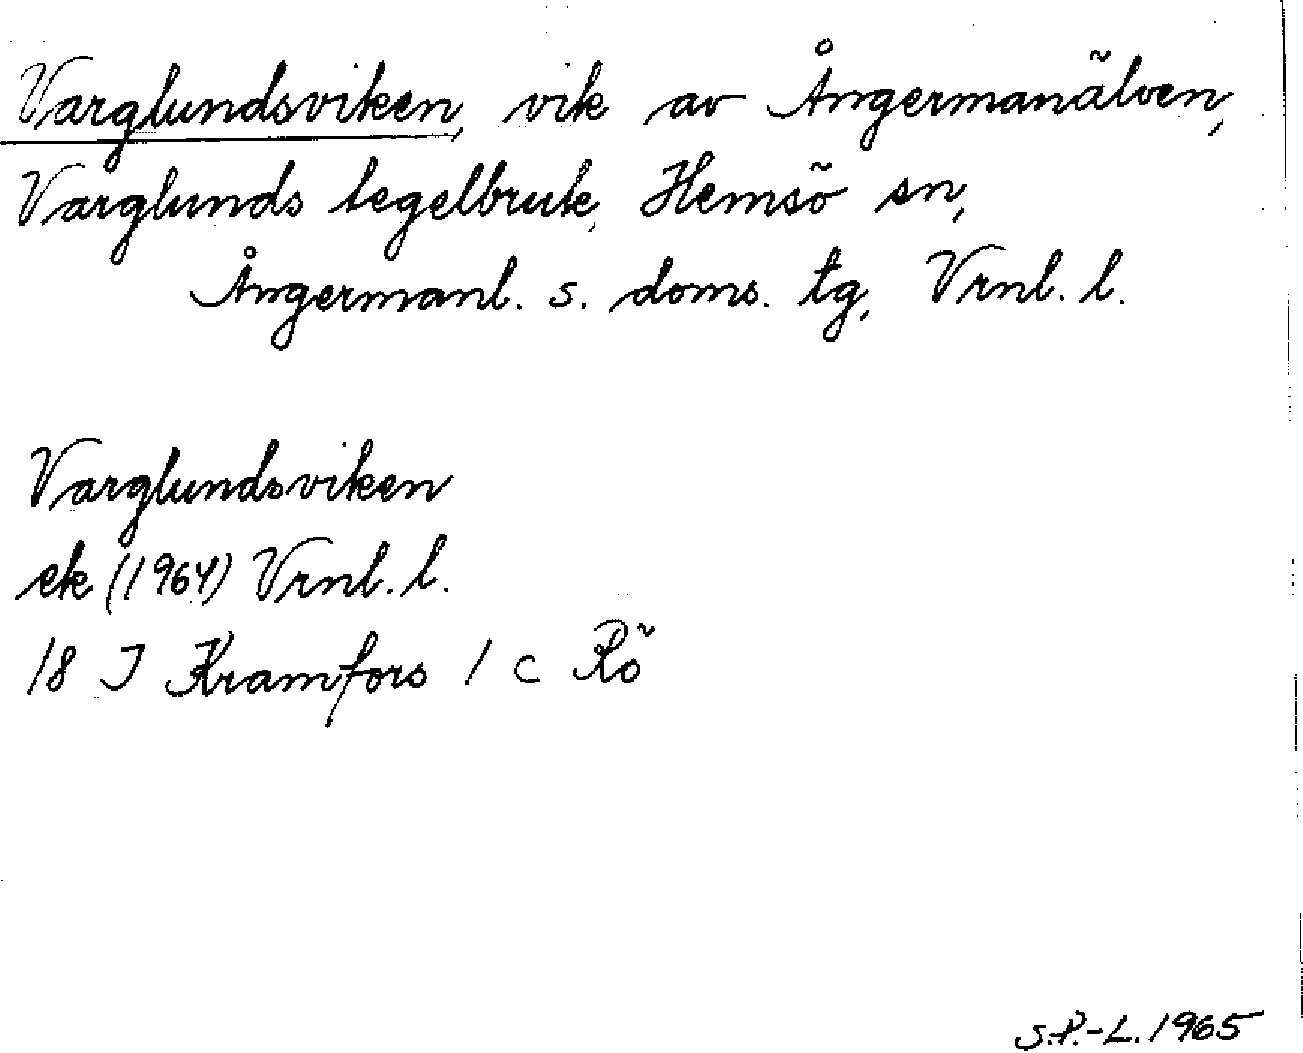 Varglundsviken, vik av Ångermanälven,
Varglunds tegelbruk, Hemsö sn,
Ångermanl. s. doms. tg, Vrnl. l.
Varglundsviken
ek (1964) Vrnl. l.
18 I Kramfors 1 c Rö
S.P.-L. 1965